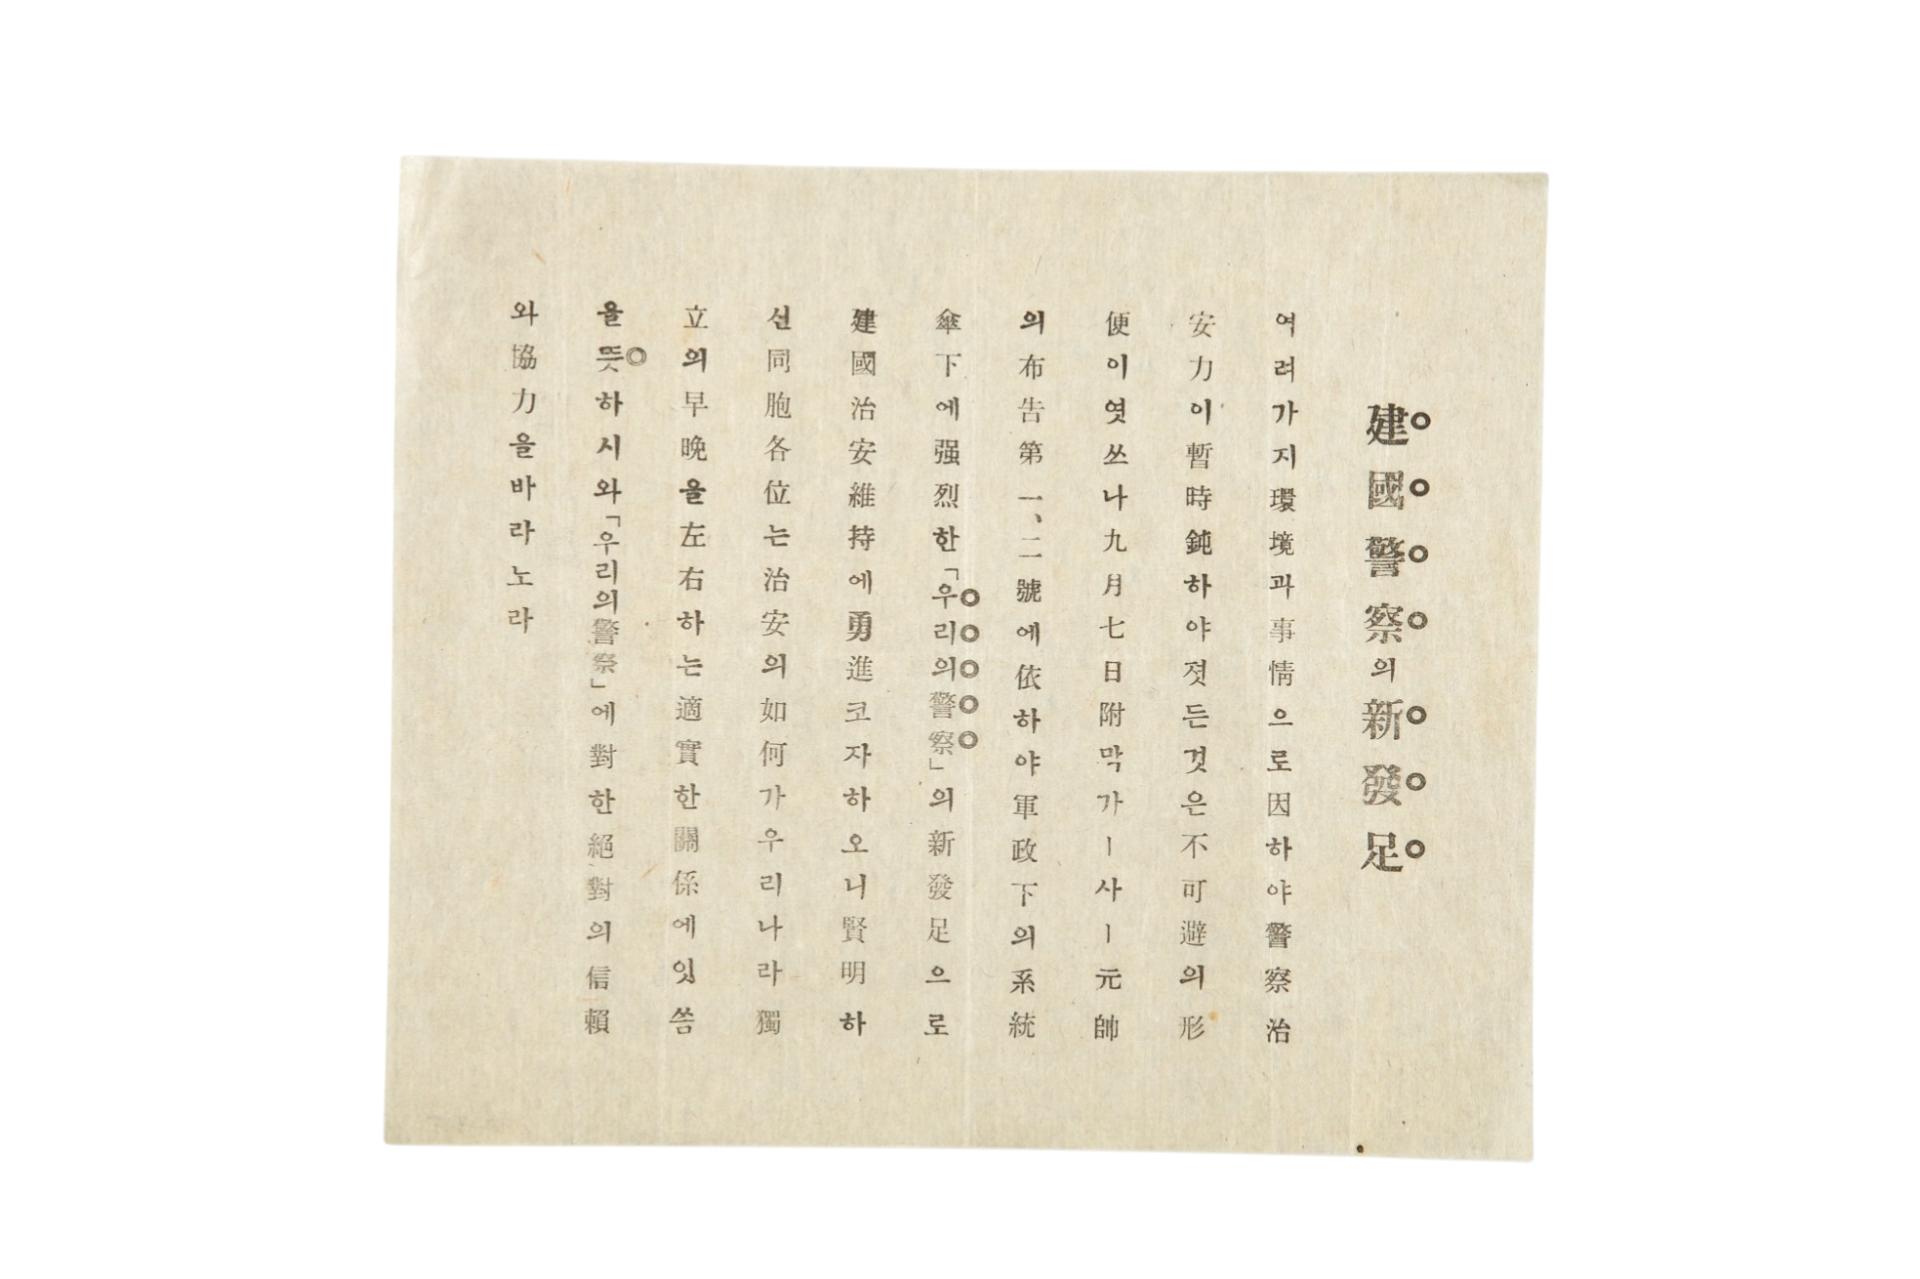 建國警察의新發足
여려가지環境과事情으로因하야警察治
安力이暫時鈍하야젓든것은不可避의形
便이엿쓰나九月七日附막가ー사ー元帥
의布告第一、二號에依하야軍政下의系統
傘下에强烈한「우리의警察」의新發足으로
建國治安維持에勇進코자하오니賢明하
신同胞各位는治安의如何가우리나라獨
立의早晩을左右하는適實한關係에잇씀
을뜻하시와「우리의警察」에對한絕對의信賴
와協力을바라노라